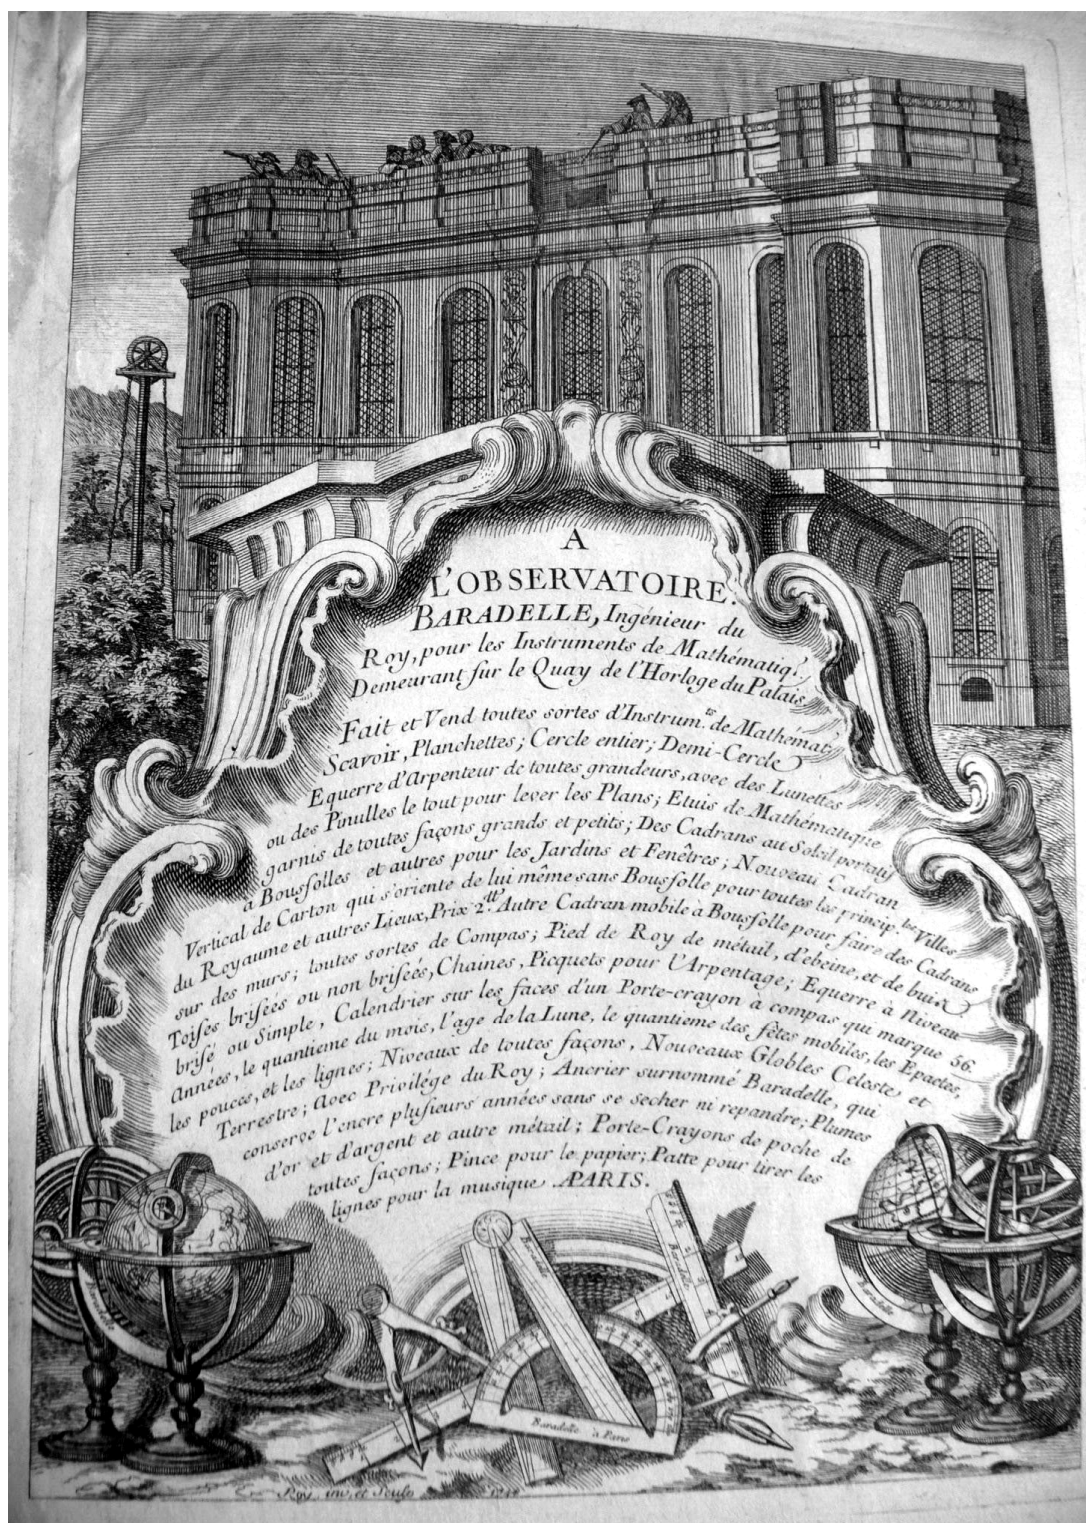 A
L'OBSERVATOIRE.
BARADELLE, Ingénieur du
Roy, pour les Instruments de Mathématiq.
Demeurant sur le Quay de l'Horloge du Palais
Fait et Vend toutes sortes d'Instrum.ts de Mathémat.
Scavoir, Planchettes; Cercle entier; Demi-Cercle
Equerre d'Arpenteur de toutes grandeurs, avec des Lunettes
ou des Pinulles le tout pour lever les Plans; Etuis de Mathématique
garnis de toutes façons grands et petits; Des Cadrans au Soleil portatif
a Boussolles et autres pour les Jardins et Fenêtres; Nouveau Cadran
Vertical de Carton qui s'oriente de lui même sans Boussolle pour toutes les princip. Villes
du Royaume et autres Lieux, Prix 2.tt Autre Cadran mobile à Boussolle pour faire des Cadrans
sur des murs; toutes sortes de Compas; Pied de Roy de métail, d'ebeine, et de buix
Toises brisées ou non brisées, Chaines, Picquets pour l'Arpentage; Equerre à niveau
brisé ou Simple, Calendrier sur les faces d'un Porte-crayon à compas qui marque 56.
Années, le quantieme du mois, l'age de la Lune, le quantieme des fêtes mobiles, les Epactes,
les pouces, et les lignes; Niveaux de toutes façons, Nouveaux Globles Celeste et
Terrestre; avec Privilége du Roy; Ancrier surnommé Baradelle, qui
conserve l'encre plusieurs années sans se secher ni repandre; Plumes
d'or et d'argent et autre métail; Porte-Crayons de poche de
toutes façons; Pince pour le papier; Patte pour tirer les
lignes pour la musique APARIS.
Baradelle
Baradelle
Baradelle
Baradelle
Baradelle à Paris
Roy, inv. et Sculp.